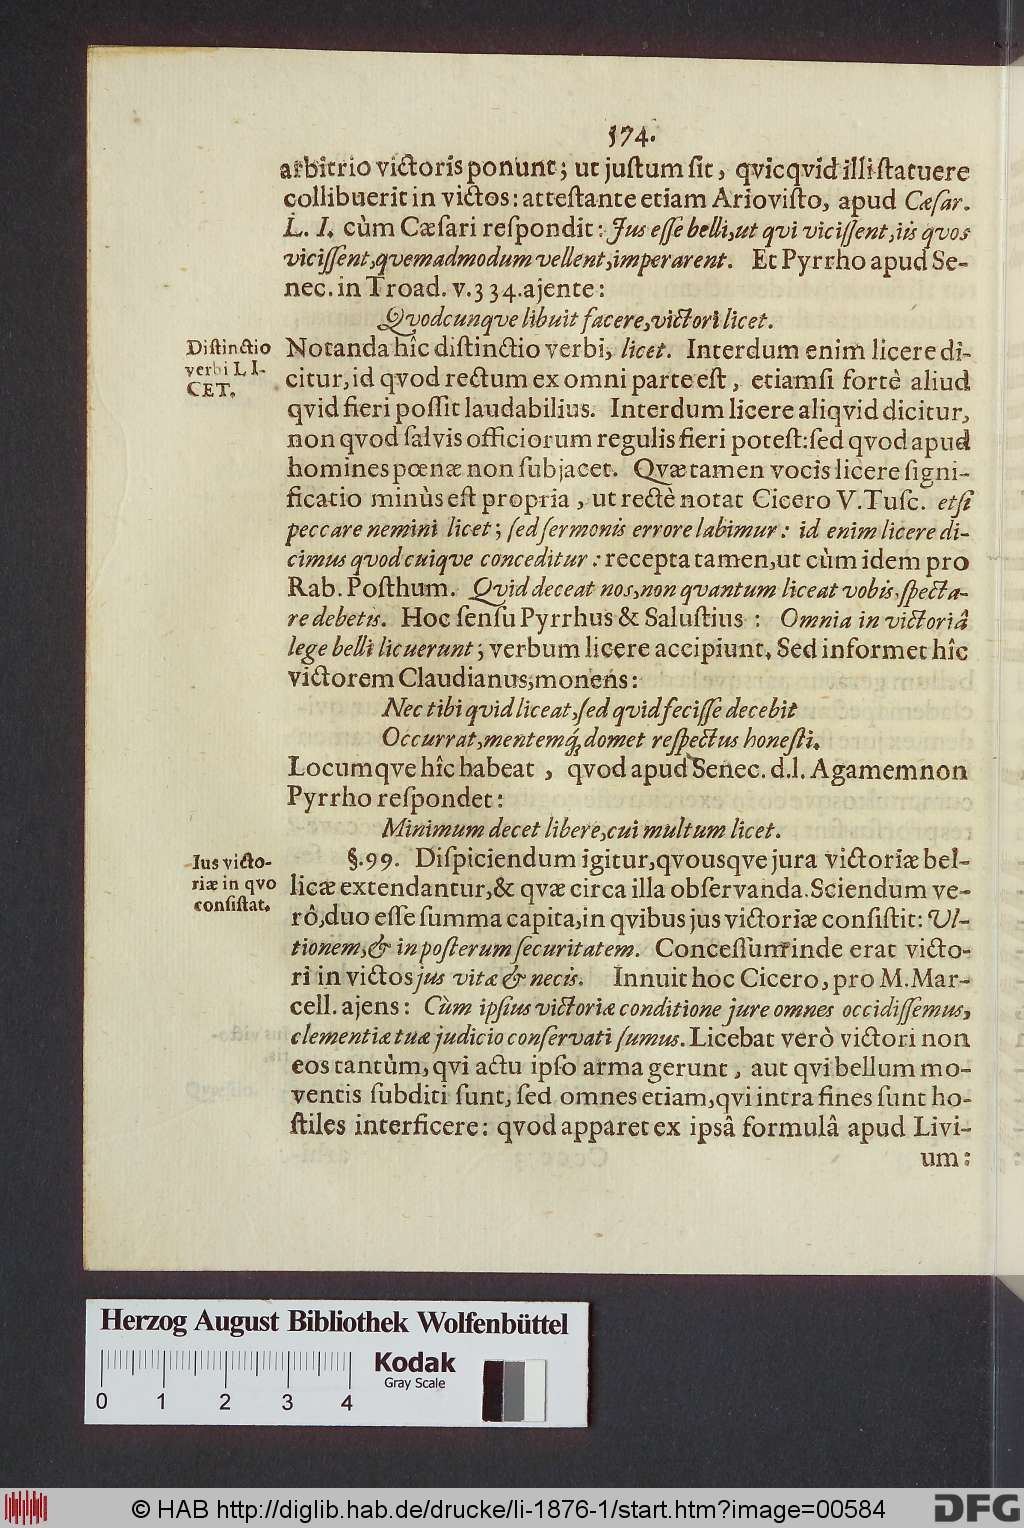 574.
arbitrio victoris ponunt; ut juſtum ſit, qvicqvid illi ſtatuere
collibuerit in victos: atteſtante etiam Arioviſto, apud Cæſar.
L. I. cùm Cæſari reſpondit: Jus eſſe belli, ut qvi viciſſent, iis qvos
viciſſent, qvemadmodum vellent, imperarent. Et Pyrrho apud Se-
nec. in Troad. v. 334. ajente:
Qvodcunqve libuit facere, victori licet.
Diſtinctio
verbi LI-
CET.
Notanda hîc diſtinctio verbi, licet. Interdum enim licere di-
citur, id qvod rectum ex omni parte eſt, etiamſi fortè aliud
qvid fieri poſſit laudabilius. Interdum licere aliqvid dicitur,
non qvod ſalvis officiorum regulis fieri poteſt: ſed qvod apud
homines pœnæ non ſubjacet. Qvæ tamen vocis licere ſigni-
ficatio minùs eſt propria, ut rectè notat Cicero V. Tuſc. etſi
peccare nemini licet; ſed ſermonis errore labimur: id enim licere di-
cimus quod cuiqve conceditur: recepta tamen, ut cùm idem pro
Rab. Poſthum. Qvid deceat nos, non qvantum liceat vobis, ſpecta-
re debetis. Hoc ſenſu Pyrrhus & Saluſtius: Omnia in victoriâ
lege belli licuerunt; verbum licere accipiunt. Sed informet hîc
victorem Claudianus, monens:
Nec tibi qvid liceat, ſed qvid feciſſe decebit
Occurrat, mentemq́; domet reſpectus honeſti.
Locumqve hîc habeat, qvod apud Senec. d. l. Agamemnon
Pyrrho reſpondet:
Minimum decet libere, cui multum licet.
Ius victo-
riæ in qvo
conſiſtat.
§. 99. Diſpiciendum igitur, qvousqve jura victoriæ bel-
licæ extendantur, & qvæ circa illa obſervanda. Sciendum ve-
rô, duo eſſe ſumma capita, in qvibus jus victoriæ conſiſtit: Ul-
tionem, & in poſterum ſecuritatem. Conceſſum inde erat victo-
ri in victos jus vitæ & necis. Innuit hoc Cicero, pro M. Mar-
cell. ajens: Cùm ipſius victoriæ conditione jure omnes occidiſſemus,
clementiæ tuæ judicio conſervati ſumus. Licebat verò victori non
eos tantùm, qvi actu ipſo arma gerunt, aut qvi bellum mo-
ventis ſubditi ſunt, ſed omnes etiam, qvi intra fines ſunt ho-
ſtiles interficere: qvod apparet ex ipsâ formulâ apud Livi-
um:
Herzog August Bibliothek Wolfenbüttel
Kodak
Gray Scale
0 1 2 3 4
© HAB http://diglib.hab.de/drucke/li-1876-1/start.htm?image=00584
DFG